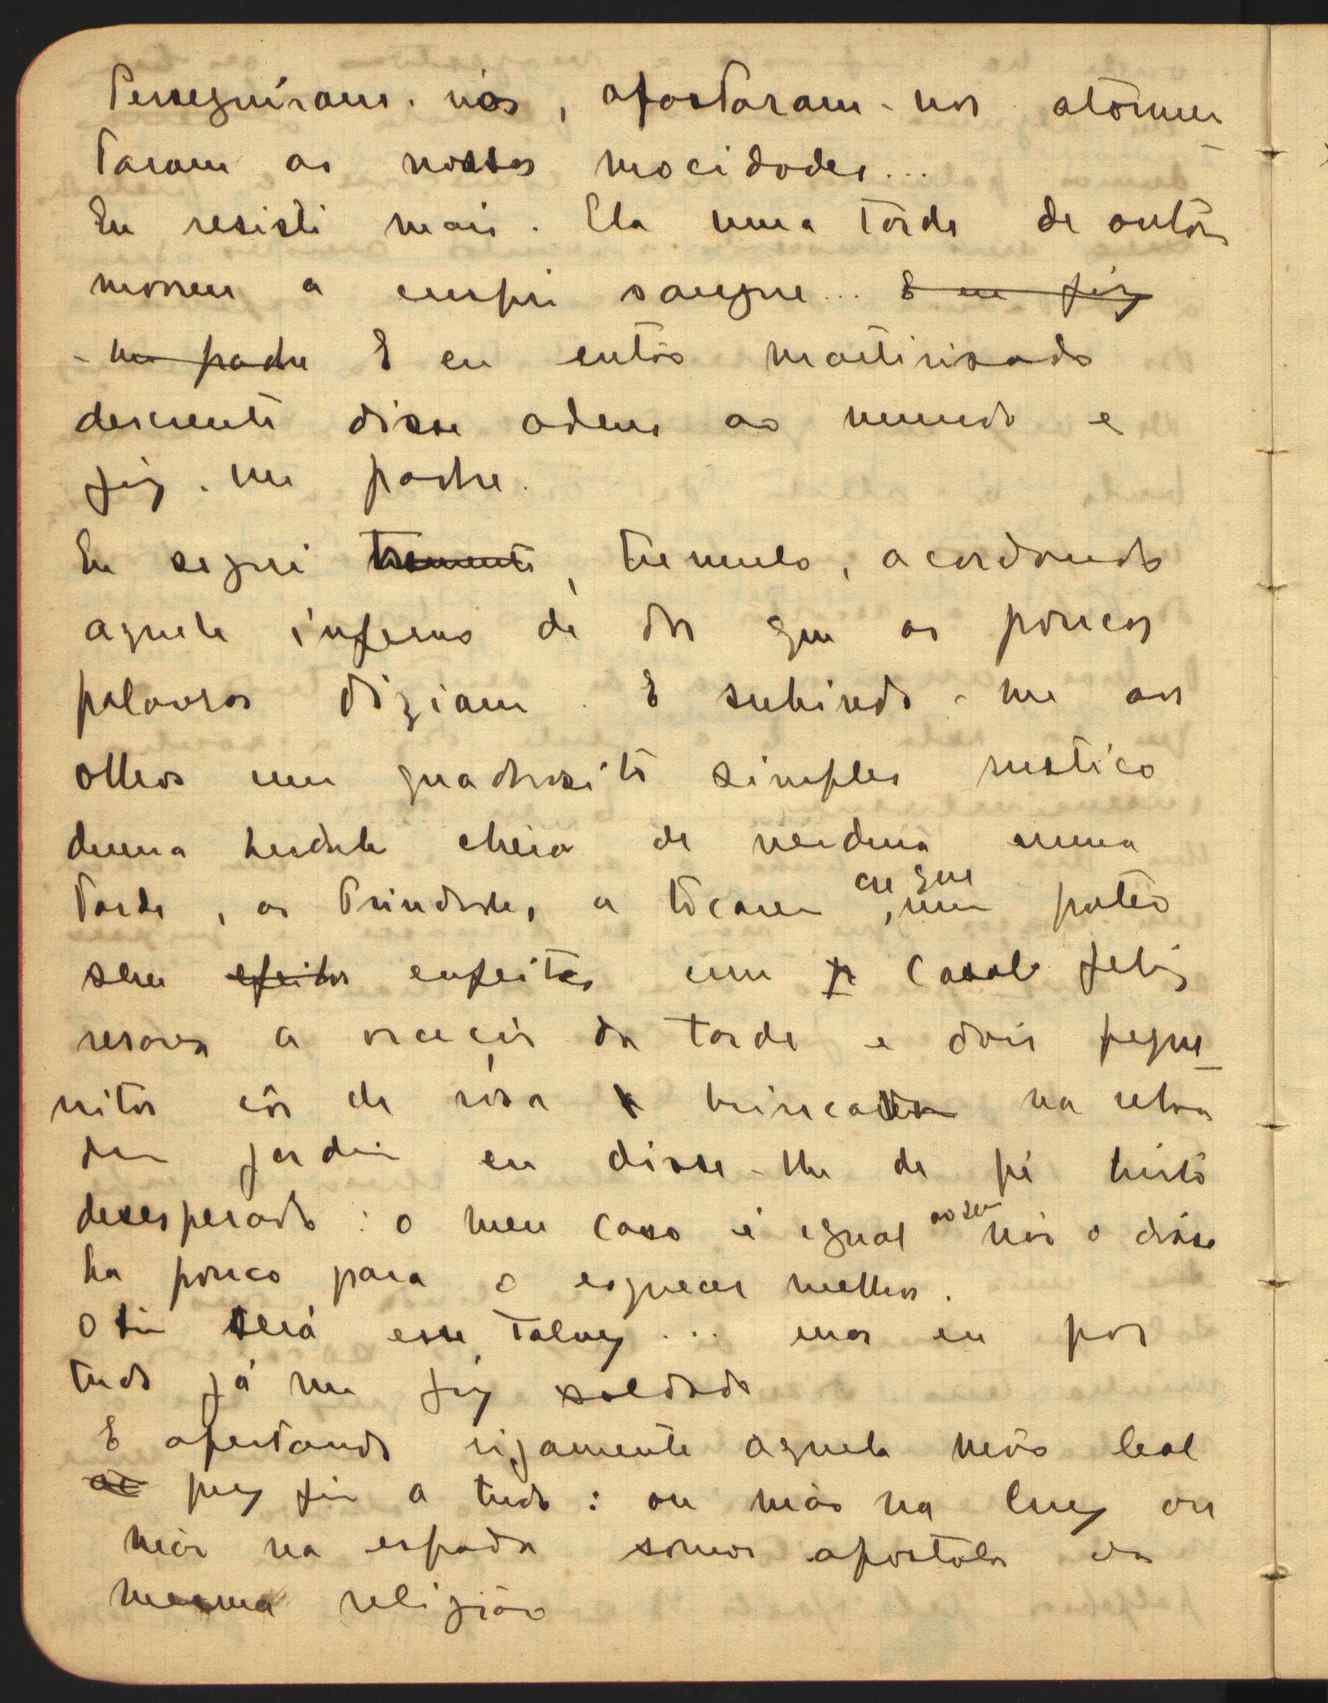 Perseguiram-nos, afastaram-nos atormen
taram as nossas mocidades...
Eu resisti mais. Ela uma tarde de outôno
morreu a cuspir sangue... E eu fiz
-me padre E eu então martirisado
descrente disse adeus ao mundo e
fiz-me padre.
Eu segui tremente, tremulo, acordando
aquele inferno de dor que as poucas
palavras diziam. E subindo-me aos
olhos um quadrosito simples rustico
duma herdade cheia de verdura numa
tarde, as Trindades a tocarem em que, num pateo
sem efeitos enfeites um p casal feliz
resava a oração da tarde e dois peque
nitos côr de rosa x brincavam na relva
dum jardim eu disse-lhe de pé hirto
desesperado: o meu caso é igual ao seu não o disse
ha pouco para o esquecer melhor.
O fim será esse talvez... mas eu por
tudo já me fiz soldado
E apertando rijamente aquela mão leal
ac puz fim a tudo: ou mão na cruz ou
mão na espada somos apostolos da
mesma religião